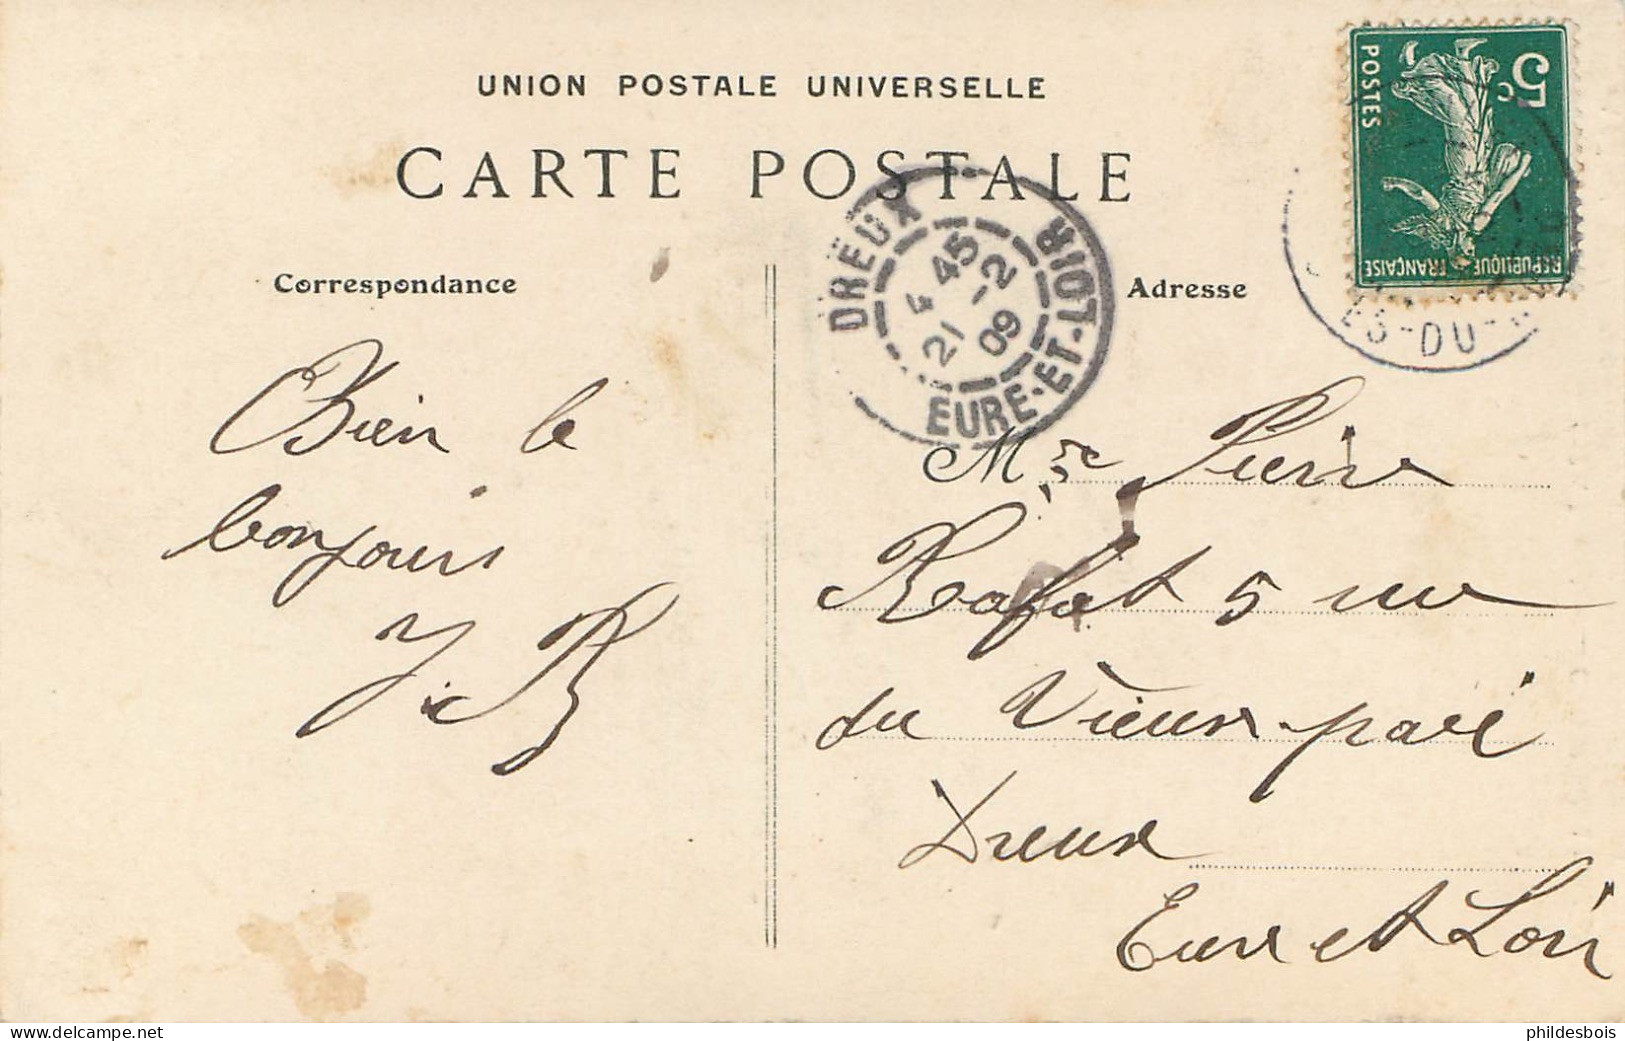 UNION POSTALE UNIVERSELLE
CARTE POSTALE
Correspondance
Adresse
POSTES
5c
REPUBLIQUE FRANÇAISE
DREUX
4 45
21 -2
09
EURE-ET-LOIR
ES-DU-
Bien le
bonjour
Y. R
Mr Pierre
Rafat 5 rue
du Vieux-pavé
Dreux
Eure et Loir
delcampe.net
phildesbois